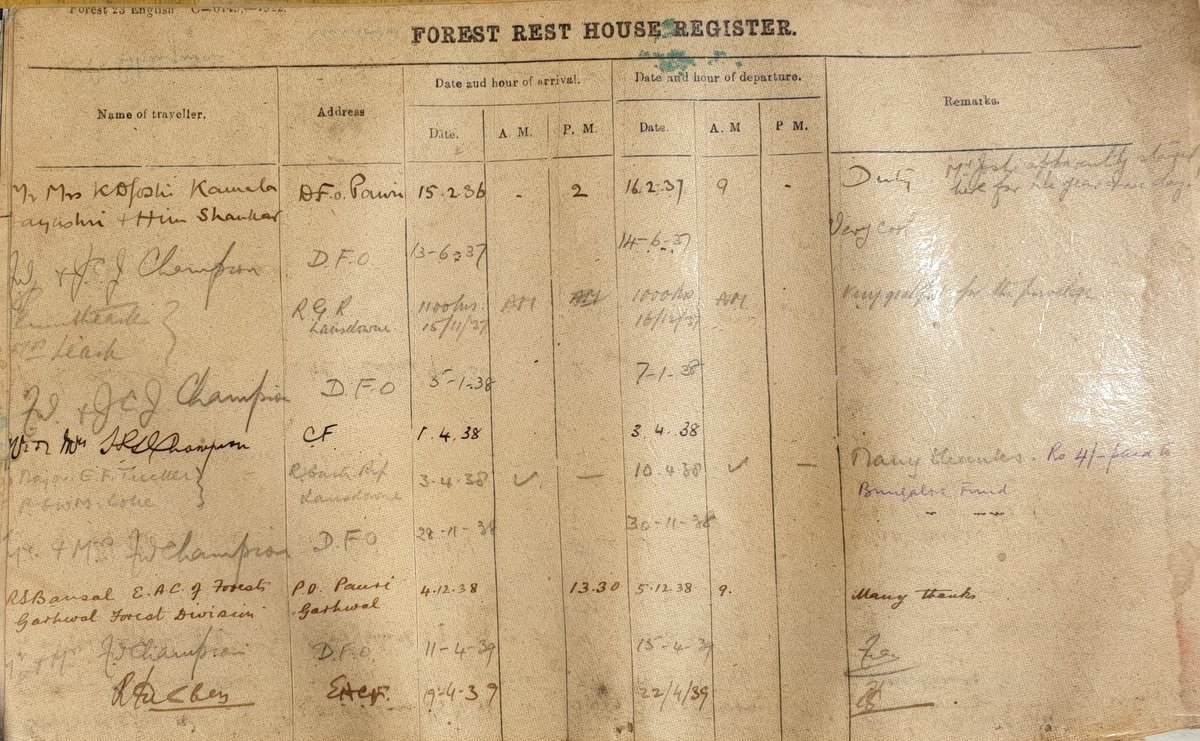 Forest 23 English
FOREST REST HOUSE REGISTER.
Name of traveller. Address Date and hour of arrival. Date and hour of departure. Remarks.
Date. A. M. P. M. Date. A. M P M.
Mrs K D Joshi Kamala D.F.O. Pauri 15.2.36 - 2 16.2.37 9 - Duty Mr Joshi apparently stayed
& Him Shankar here for his year one day.
Very cool
& J.C.J Champion D.F.O 13-6-37 14-6-37
R G R 1100 hrs AM AM 1000 hrs AM Very grateful for the privilege
Lansdowne 15/11/37 16/12/37
Leach
& J C J Champion D.F.O 5-1-38 7-1-38
Mr & Mrs Champion C.F. 1.4.38 3.4.38
Major E.F. Tucker R. Garh Rif 3.4.38 ✓ — 10.4.38 ✓ — Many thanks. Rs 4/- paid to
Lansdowne Bungalow Fund
Mr. & Mrs. FW Champion D.F.O 28-11-38 30-11-38
RS Bansal E.A.C. of Forests P.O. Pauri 4.12.38 13.30 5.12.38 9. Many thanks
Garhwal Forest Division Garhwal
Mr & Mrs FW Champion D.F.O. 11-4-39 15-4-39
E.A.C.F. 19-4-39 22/4/39